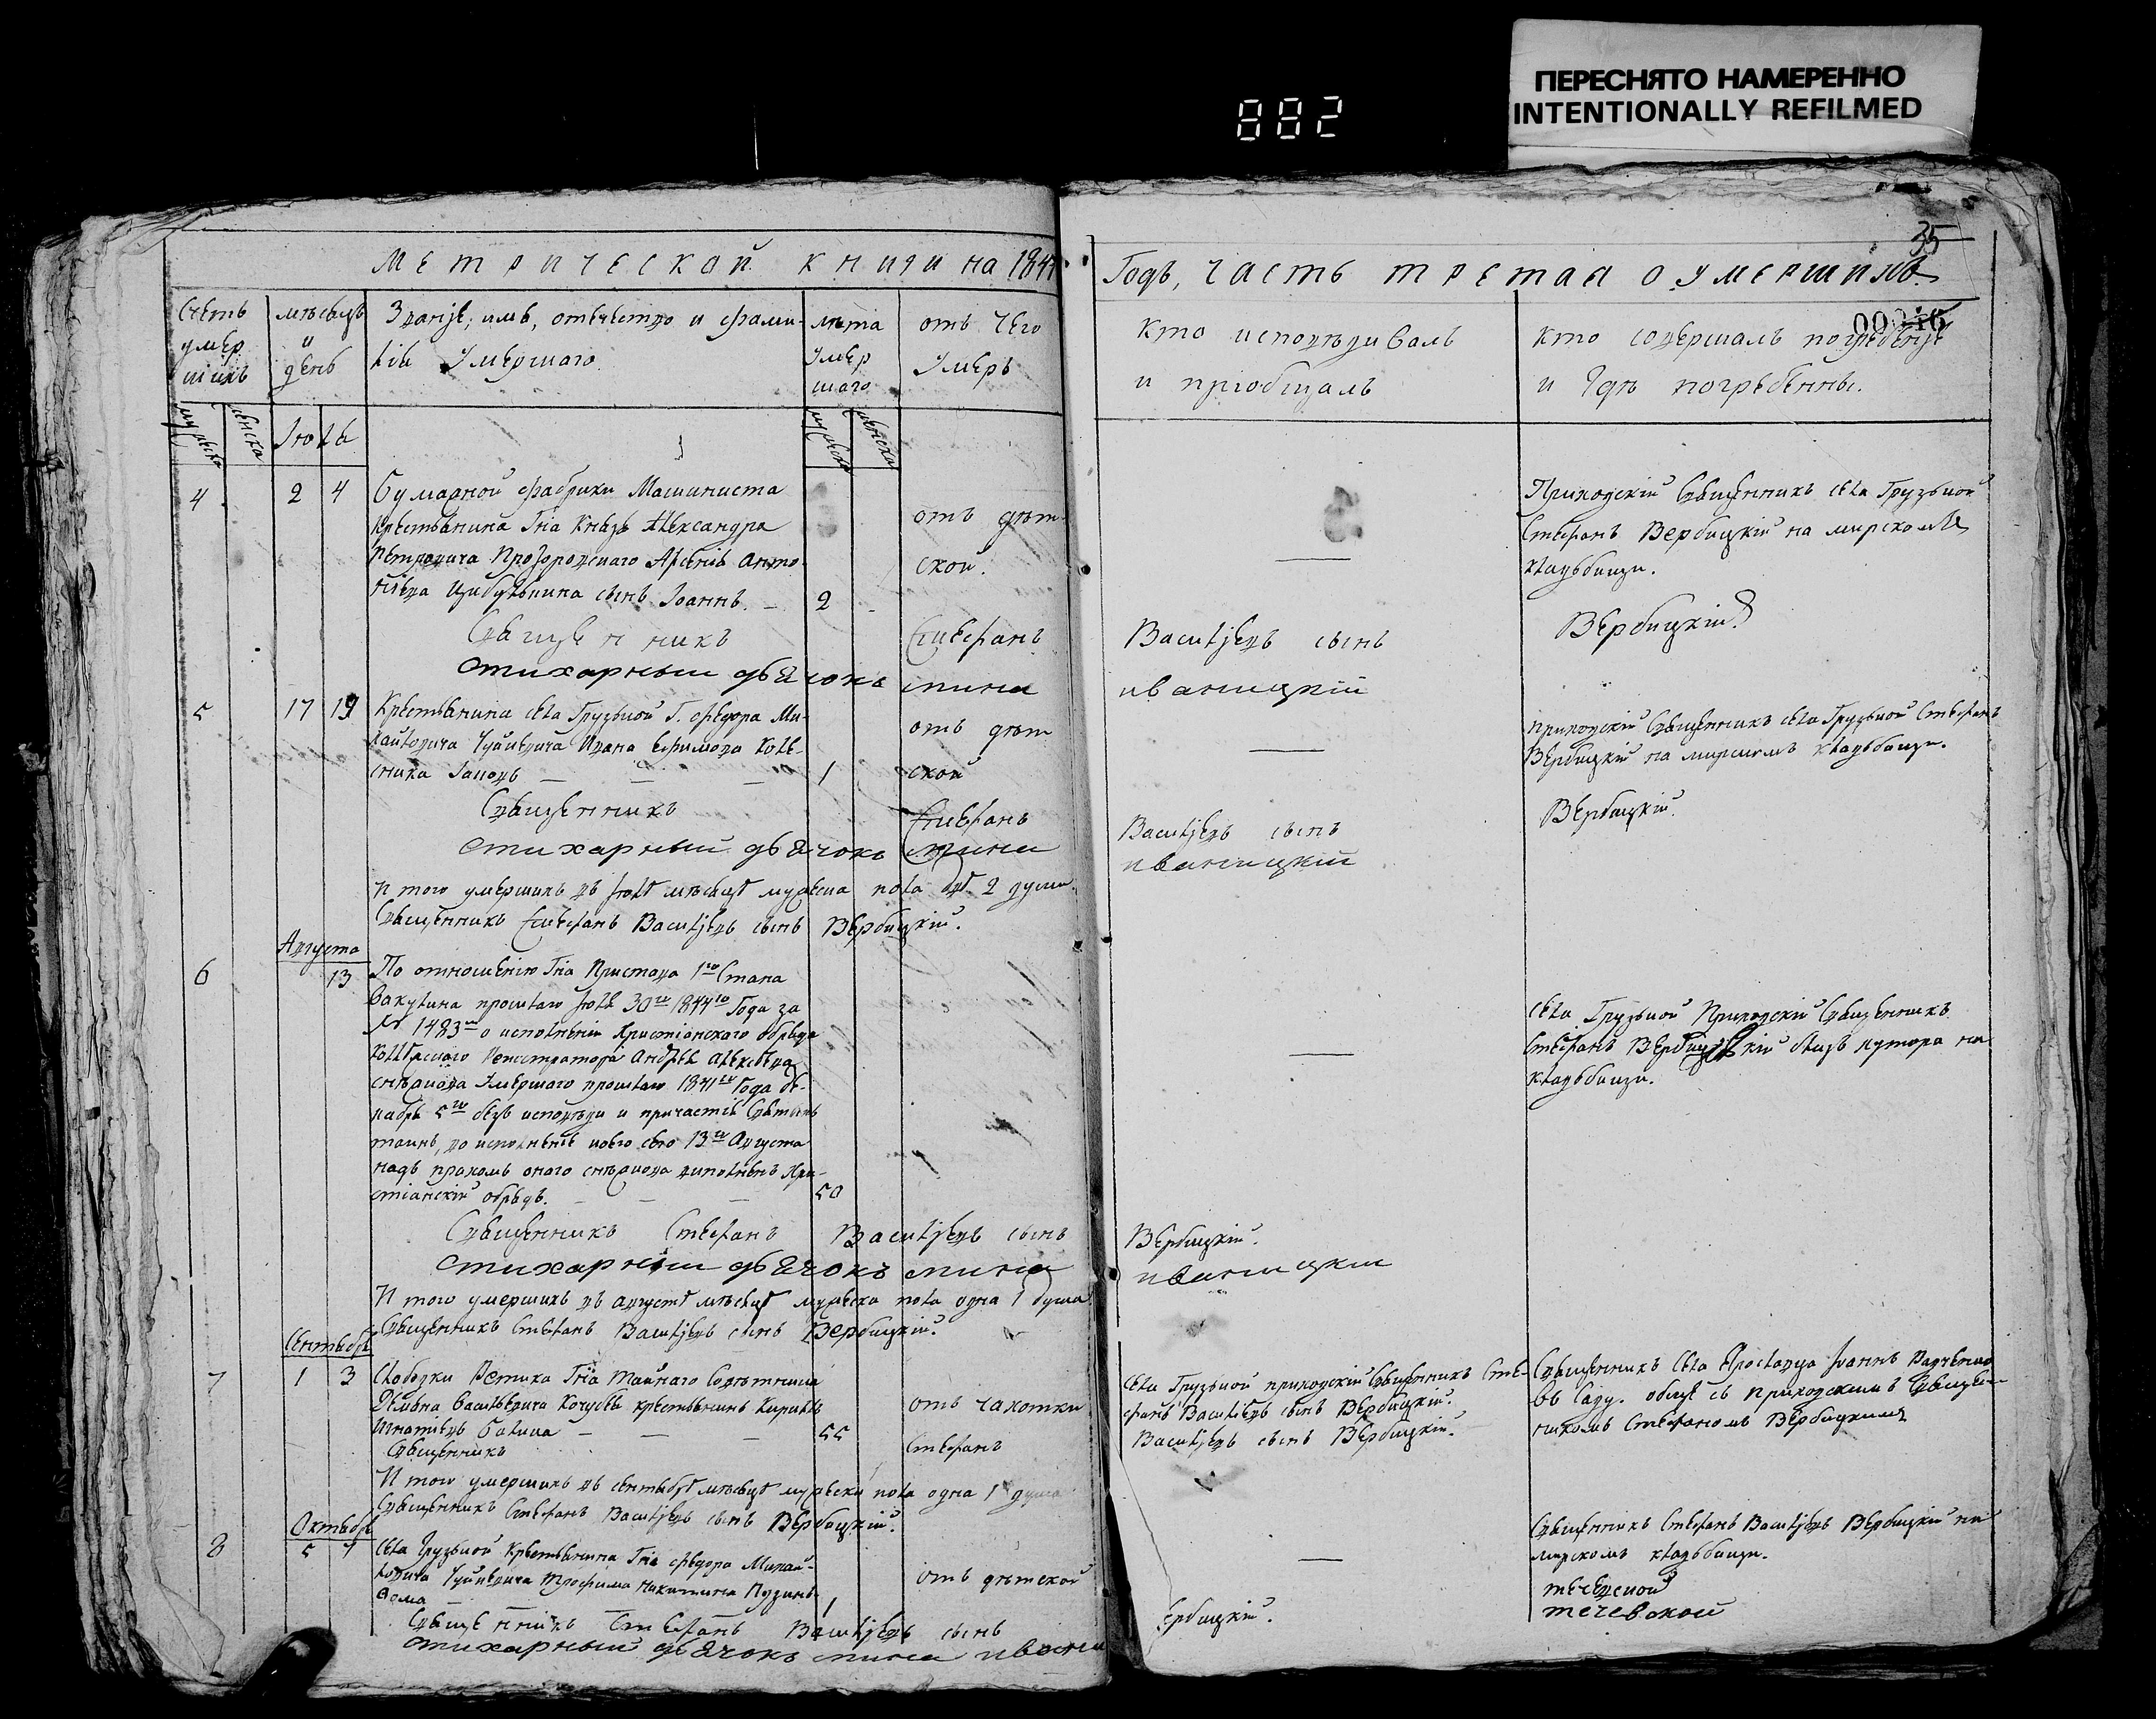 ПЕРЕСНЯТО НАМЕРЕННО
INTENTIONALLY REFILMED
882
35
Метрической книги на 184
Годъ, часть третая о умершихъ.
Счетъ умер шихъ
мѣсяцъ и день
Званіе, имя, отечество и фами-
лія Умершаго.
лѣта Умер шаго
отъ чего Умеръ
кто исповѣдивалъ
и пріобщалъ
кто совершалъ погребеніе
и Гдѣ погребенны.
мужеска женска
Іюля
мужеска женска
4 2 4 Бумажной фабрики Машиниста
Крестьянина Гна Князя Александра
Петровича Прозоровскаго Арсенія Анто
ніева Цибулькина сынъ Іоаннъ. — 2
отъ дѣт
ской.
Приходскій Священникъ села Грузьной
Стефанъ Вербицкій на мирскомъ
кладьбищи.
Священникъ Стефанъ Васильевъ сынъ Вербицкій
стихарный дьячокъ мина иваницкій
5 17 19 Крестьянина села Грузьной Г. Федора Ми-
хайловича Чуйкевича Ивана Ефимова Коле-
сника Іаковъ — — — 1
отъ дѣт
ской
приходскій Священникъ села Грузьной Стефанъ
Вербицкій на мирскомъ кладьбищи.
Священникъ Стефанъ Васильевъ сынъ Вербицкій.
Стихарный дьячокъ мина иваницкій
И того умершихъ въ Іюлѣ мѣсяцѣ мужеска пола двѣ 2 души.
Священникъ Стефанъ Васильевъ сынъ Вербицкій.
Августа
6 13 По отношенію Гна Пристава 1го Стана
Вакулина прошлаго Іюля 30го 1844го Года за
№ 1483м о исполненіи Христіанскаго обряда
Коллежскаго Регистратора Андрея Алексѣева
снѣжкова Умершаго прошлаго 1841го Года де-
кабря 5го безъ исповѣди и причастія Святыхъ
таинъ, во исполненіе коего сего 13го Августа
надъ прахомъ онаго снѣжкова виполненъ Хри-
стіанскій обрядъ. — — — 50
села Грузьной Приходскій Священникъ
Стефанъ Вербицкій близь хутора на
кладьбищи.
Священникъ Стефанъ Васильевъ сынъ Вербицкій.
Стихарній дьячокъ мина иваницкій
И того умершихъ въ августѣ мѣсяцѣ мужеска пола одна 1 душа.
Священникъ Стефанъ Васильевъ сынъ Вербицкій.
Сентября
7 1 3 Слободки Ретика Гна тайнаго Совѣтника
Демьяна Васильевича Кочубея крестьянинъ Кирилъ
Игнатіевъ Балица — — — 55
отъ чахотки
села Грузьной приходскій Священникъ Сте-
фанъ Васильевъ сынъ Вербицкій.
Священникъ села Ярославца Іоаннъ Радченко
въ Саду. обще съ Приходскимъ Священ-
никомъ Стефаномъ Вербицкимъ
Священникъ Стефанъ Васильевъ сынъ Вербицкій.
И того умершихъ въ сентябрѣ мѣсяцѣ мужеска пола одна 1 душа
Священникъ Стефанъ Васильевъ сынъ Вербицкій.
Октября
8 5 7 села Грузьной Крестьянина Гна Федора Михай-
ловича Чуйкевича Трофима Никитина 1
отъ дѣтской
Священникъ Стефанъ Васильевъ Вербицкій на
мирскомъ кладьбищи.
Священникъ Стефанъ Васильевъ сынъ ербицкій.
стихарный дьячокъ мина